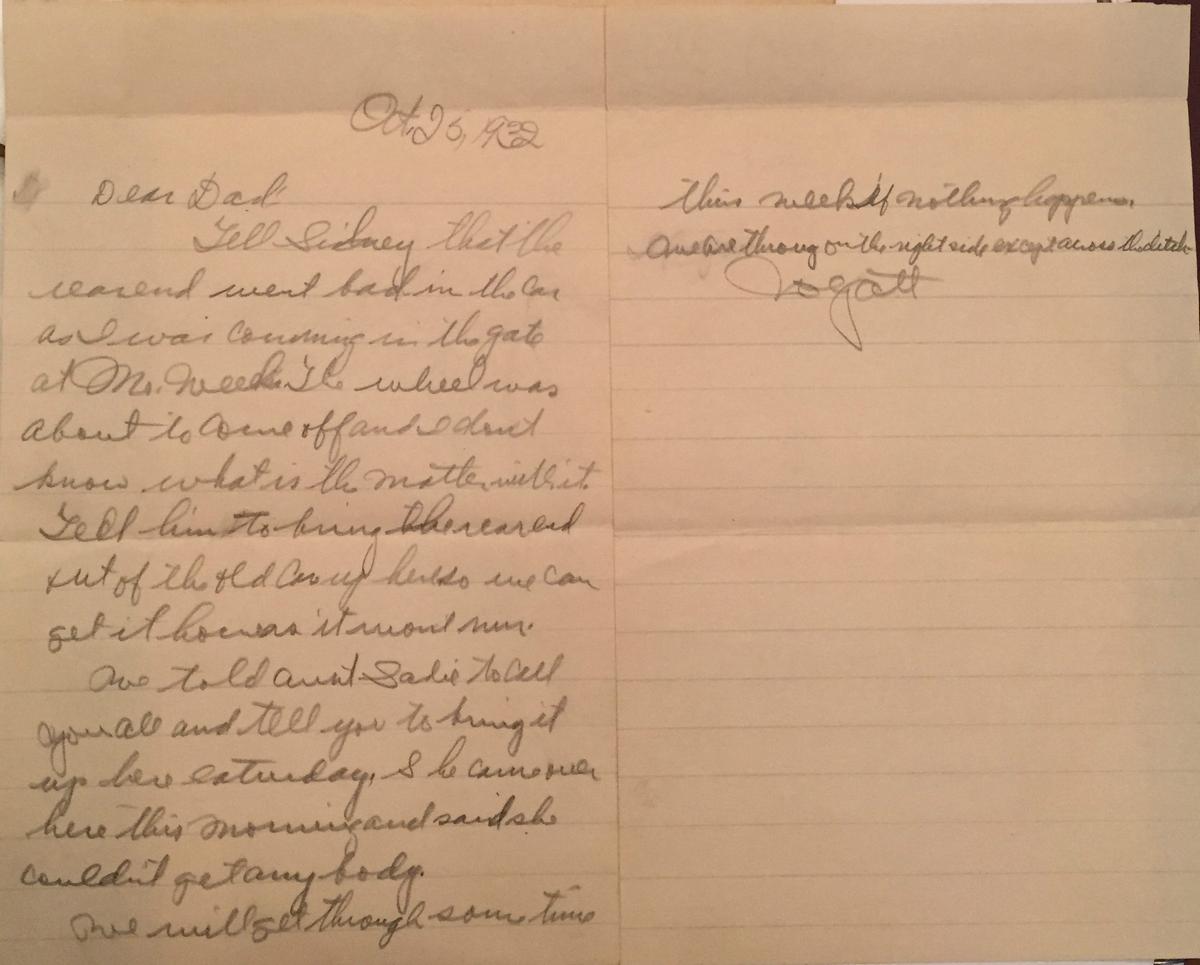 Oct. 25, 1932
Dear Dad
Tell Sidney that the
rearend went bad in the car
as I was comming in the gate
at Mr. Weeks. The wheel was
about to come off and I dont
know what is the matter with it.
Tell him to bring the rearend
out of the old car up here so we can
get it home as it wont run.
We told aunt Sadie to call
you all and tell you to bring it
up here saturday. She came over
here this morning and said she
couldn't get any body.
We will get through some time
this week if nothing happens.
We are throug on the right side except across the ditch